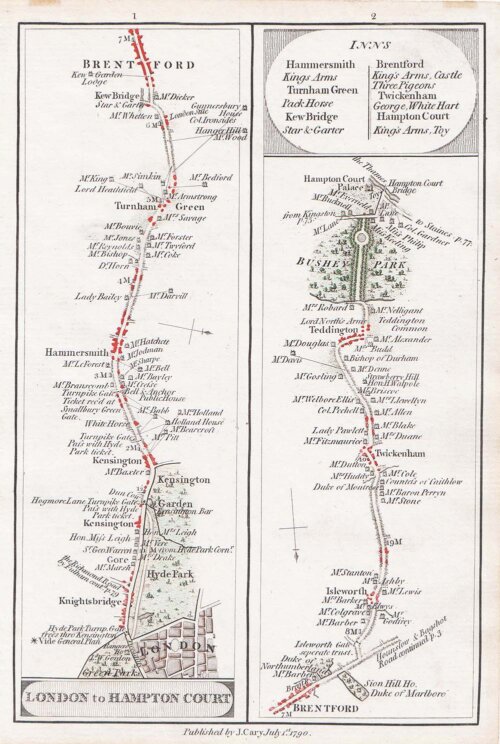 1
2
7 M
BRENTFORD
Kew Garden
Lodge
Kew Bridge
Star & Garter
Mr. Dicker
Mr. Whetten
London Stile
Gunnersbury
House
Col. Ironsides
6 M
Hanger Hill
Mr. Wood
Mr. King
Mr. Bedford
Lord Heathfield
5 M
Mr. Armstrong
Turnham Green
Mrs. Savage
Mr. Bowrie
Mr. Jones
Mr. Forster
Mr. Reynolds
Mr. Twyford
Mr. Bishop
Mr. Coke
Dr. Horn
4 M
Lady Bailey
Mr. Darvill
Mr. Hatchett
Hammersmith
Mr. Jodman
Mr. Sharpe
Mr. Le Forest
Mr. Bell
3 M
Mr. Bayley
Mr. Branscomb
Bell & Anchor
Public House
Turnpike Gate
Ticket rec'd at
Smallbury Green
Gate
Mr. Holland
Holland House
White Horse
Turnpike Gate
Pays with Hyde
Park ticket
2 M
Mr. Pitt
Kensington
Mr. Baxter
Kensington
Garden
Hogmore Lane Turnpike Gate
Pays with Hyde
Park ticket
Kensington Bar
Kensington
Hon. Mrs. Leigh
Hon. Miss Leigh
Mr. Vere
St. Geo. Warren
M from Hyde Park Corn.r
Gore
Mr. Drake
Mr. Marsh
Hyde Park
the Richmond Road
Knightsbridge
Hyde Park Turnp. Gate
frees thro Kensington
* Vide General Plan
LONDON
Green Park
LONDON to HAMPTON COURT
INNS
Hammersmith
Kings Arms
Turnham Green
Pack Horse
Kew Bridge
Star & Garter
Brentford
King's Arms, Castle
Three Pigeons
Twickenham
George, White Hart
Hampton Court
King's Arms, Toy
the Thames
Hampton Court
Palace
Hampton Court
Bridge
Toy
from Kingston
to Staines p. 77.
Col. Gardner
Miss Philip
BUSHEY PARK
Mrs. Robard
Mr. Nelligant
Teddington
Common
Lord North's Arms
Teddington
Mr. Alexander
Mr. Douglas
Mr. Budd
Mr. Davis
Bishop of Durham
Mr. Deane
Mr. Gosling
Strawberry Hill
Hon. H. Walpole
Mr. Briscoe
Mr. Welbore Ellis
Mr. Llewellyn
Col. Pechell
Mr. Allen
Lady Pawlett
Mr. Blake
Mrs. Fitzmaurice
Mr. Duane
Twickenham
Mr. Dutton
Mr. Cole
Countess of Caithlow
Duke of Montrose
Mr. Baron Perryn
Mr. Stone
Mr. Stanton
Mr. Ashby
Isleworth
Mr. Lewis
Mr. Barker
Mr. Colgrave
Mr. Godfrey
Mr. Barber
8 M
Isleworth Gate
seperate trust
Hounslow & Bagshot
Road continued p. 3
Duke of
Northumberland
Sion Hill Ho.
Duke of Marlboro'
7 M
BRENTFORD
Published by J. Cary July 1st. 1790.